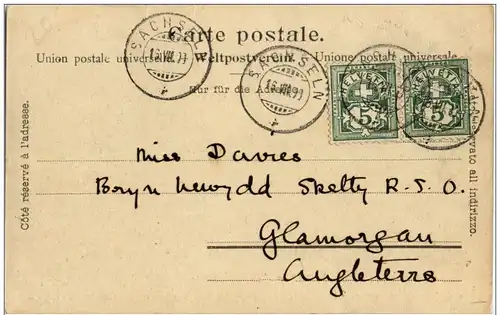 Carte postale.
Union postale universelle. Weltpostverein. Unione postale universale
Nur für die Adresse.
SACHSELN
16.VIII.
SACHSELN
16.VIII.
HELVETIA
5
HELVETIA
5
Miss Davies
Bryn newydd Sketty R.S.O.
Glamorgan
Angleterre
Côté réservé à l'adresse.
all indirizzo.